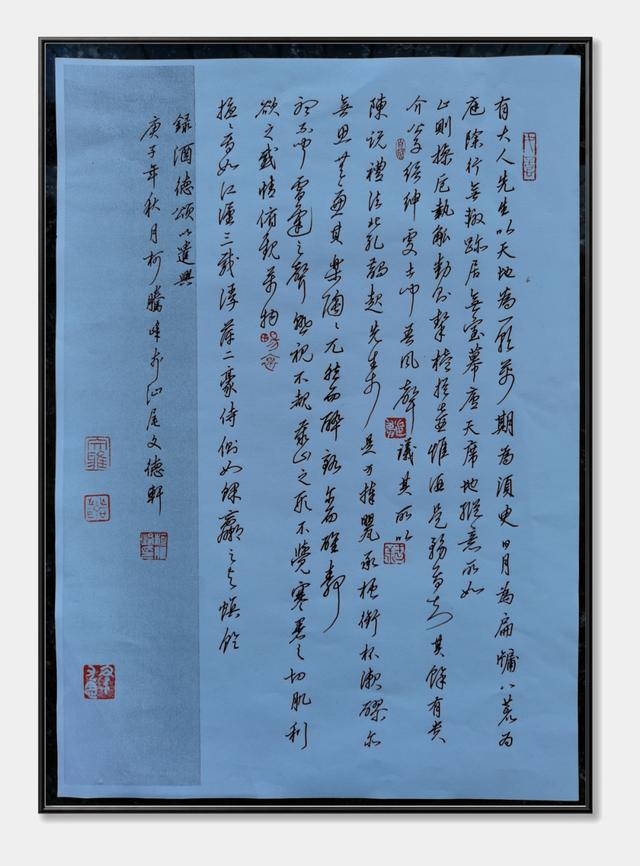 有大人先生以天地為一朝萬期為須臾日月為扃牖八荒為
庭除行無轍跡居無室幕廬天席地縱意所如
止則操卮執觚動則挈榼提壺惟酒是務焉知其餘有貴
介公子搢紳處士聞吾風聲議其所以
陳說禮法是非鋒起先生於是方捧甖承槽銜杯漱醪
無思無慮其樂陶〻兀然而醉豁爾而醒靜
聽不聞雷霆之聲熟視不覩泰山之形不覺寒暑之切肌利
欲之感情俯觀萬物
擾〻焉如江漢之載浮萍二豪侍側如蜾蠃之與螟蛉
錄酒德頌以遣興
庚子年秋月柯騰峰於汕尾文德軒